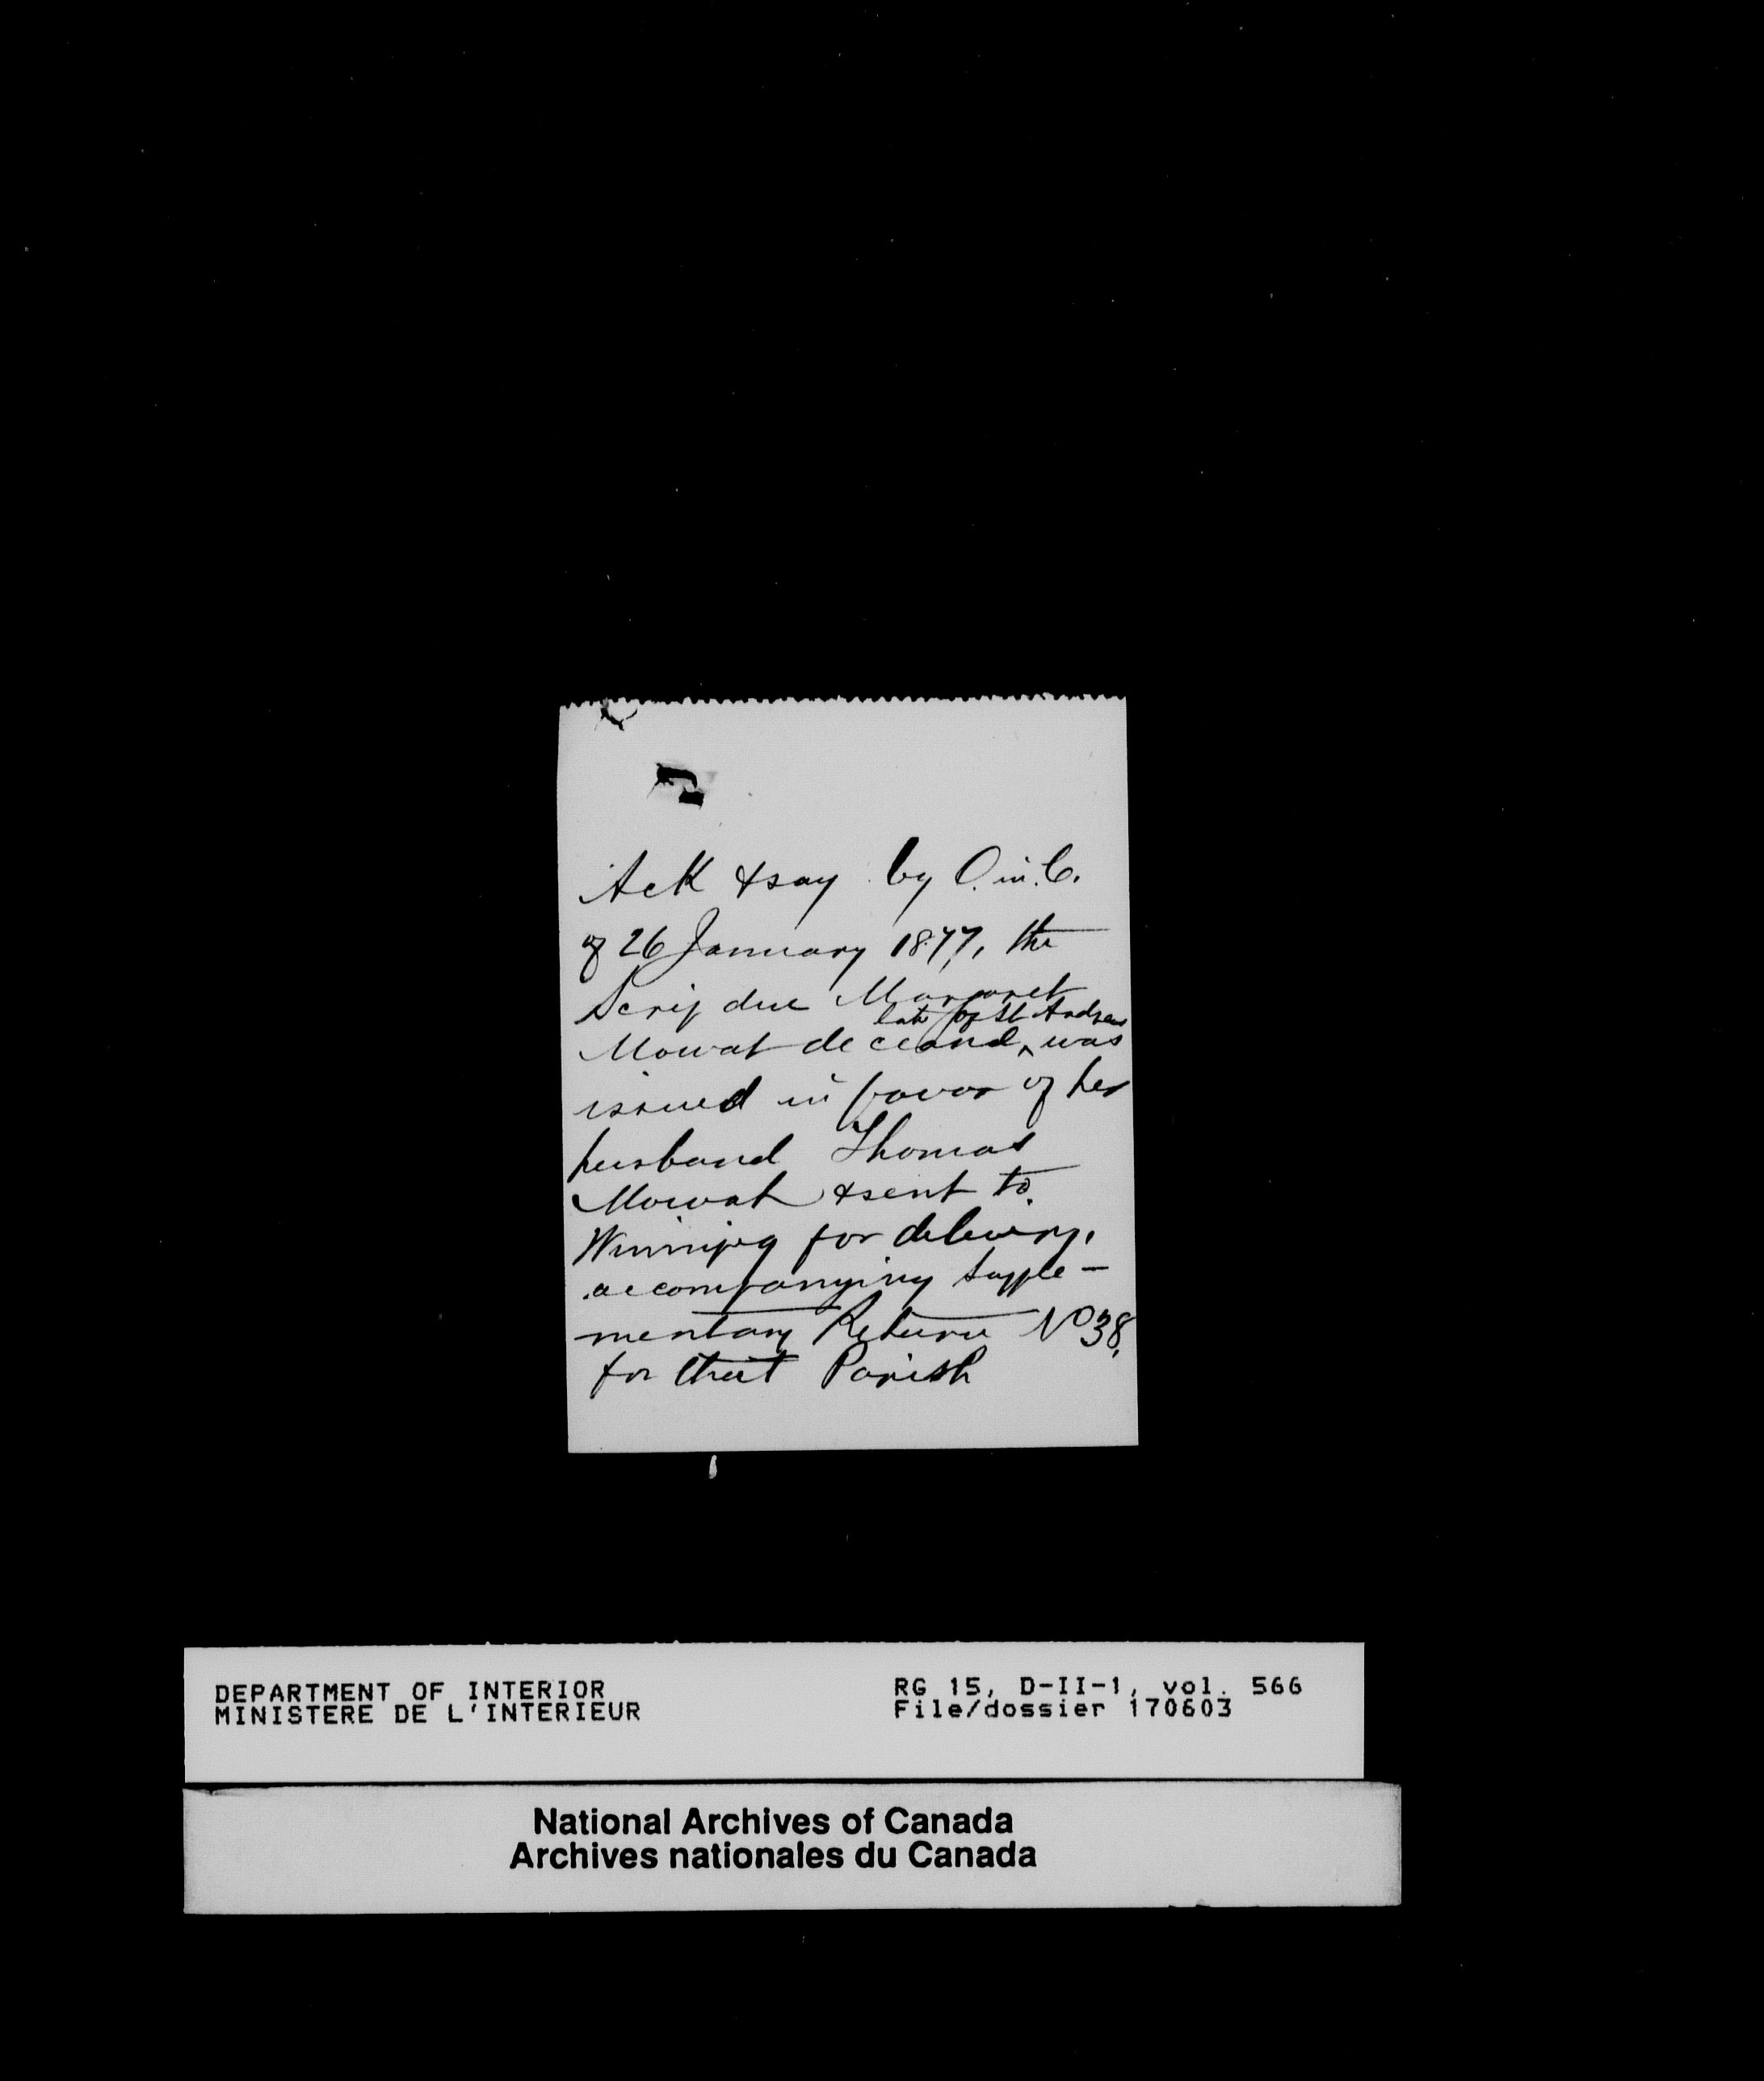 Ack & say by O. in C.
of 26 January 1877, the
Scrip due Margaret
late of St Andrews
Mowat deceased, ^ was
issued in favor of her
husband Thomas
Mowat & sent to
Winnipeg for delivery,
accompanying Supple-
mentary Return No 38,
for that Parish
DEPARTMENT OF INTERIOR
MINISTERE DE L'INTERIEUR
RG 15, D-II-1, vol. 566
File/dossier 170603
National Archives of Canada
Archives nationales du Canada